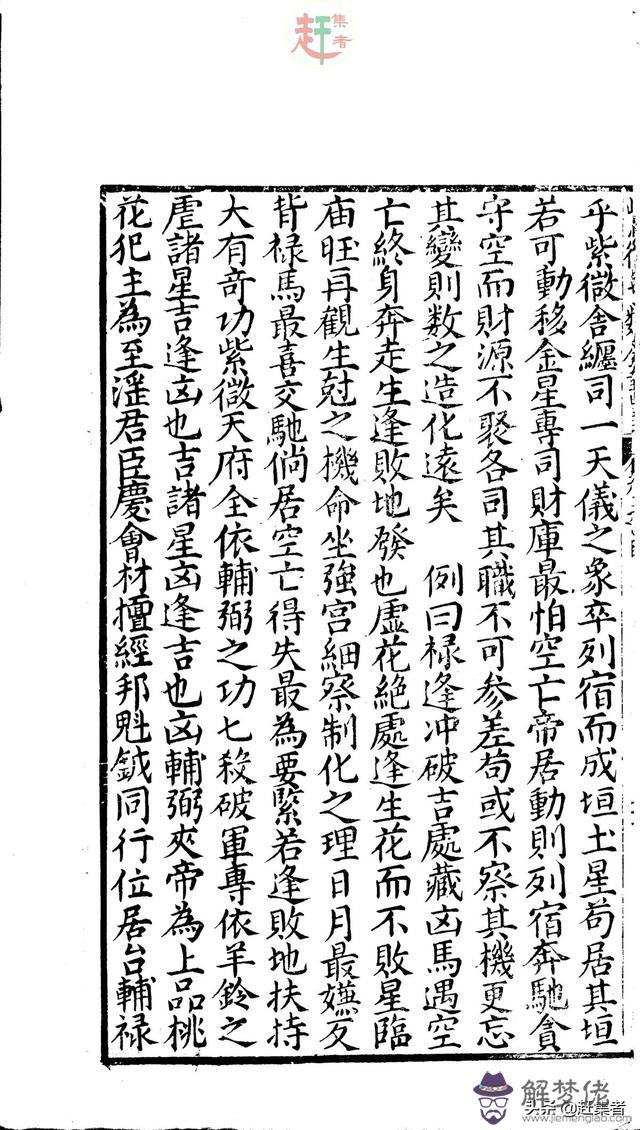 赶集者
乎紫微舍纒司一天儀之衆卒列宿而成垣土星苟居其垣
若可動移金星專司財庫最怕空亡帝居動則列宿奔馳貪
守空而財源不聚各司其職不可參差苟或不察其機更忘
其變則数之造化遠矣　例曰禄逢冲破吉處藏凶馬遇空
亡終身奔走生逢敗地發也虚花絶處逢生花而不敗星臨
庙旺再觀生尅之機命坐強宫細察制化之理日月最嫌反
背禄馬最喜交馳倘居空亡得失最為要緊若逢敗地扶持
大有奇功紫微天府全依輔弼之功七殺破軍專依羊鈴之
虐諸星吉逢凶也吉諸星凶逢吉也凶輔弼夾帝為上品桃
花犯主為至滛君臣慶會材擅經邦魁鉞同行位居台輔禄
解梦佬
www.jiemenglab.com
头条@赶集者